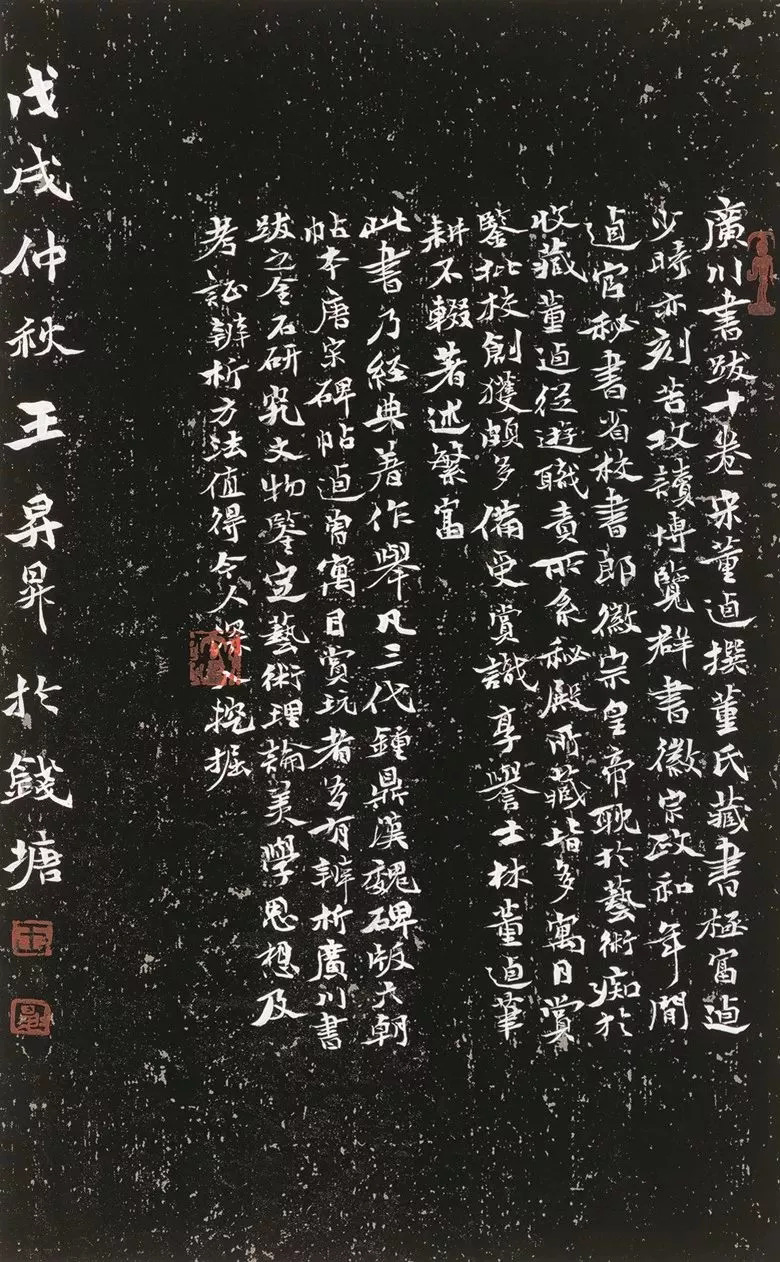 廣川書跋十卷宋董逌撰董氏藏書極富逌
少時亦刻苦攻讀博覽群書徽宗政和年間
逌官秘書省校書郎徽宗皇帝耽於藝術痴於
收藏董逌從遊職責所系秘殿所藏皆多寓目賞
鑒批校創獲頗多備受賞識享譽士林董逌筆
耕不輟著述繁富
此書乃經典著作舉凡三代鍾鼎漢魏碑版六朝
帖本唐宗碑帖逌曾寓目賞玩者多有辨析廣川書
跋之金石研究文物鑒定藝術理論美學思想及
考證辨析方法值得令人深挖掘
戊戌仲秋王昇昇於錢塘
王